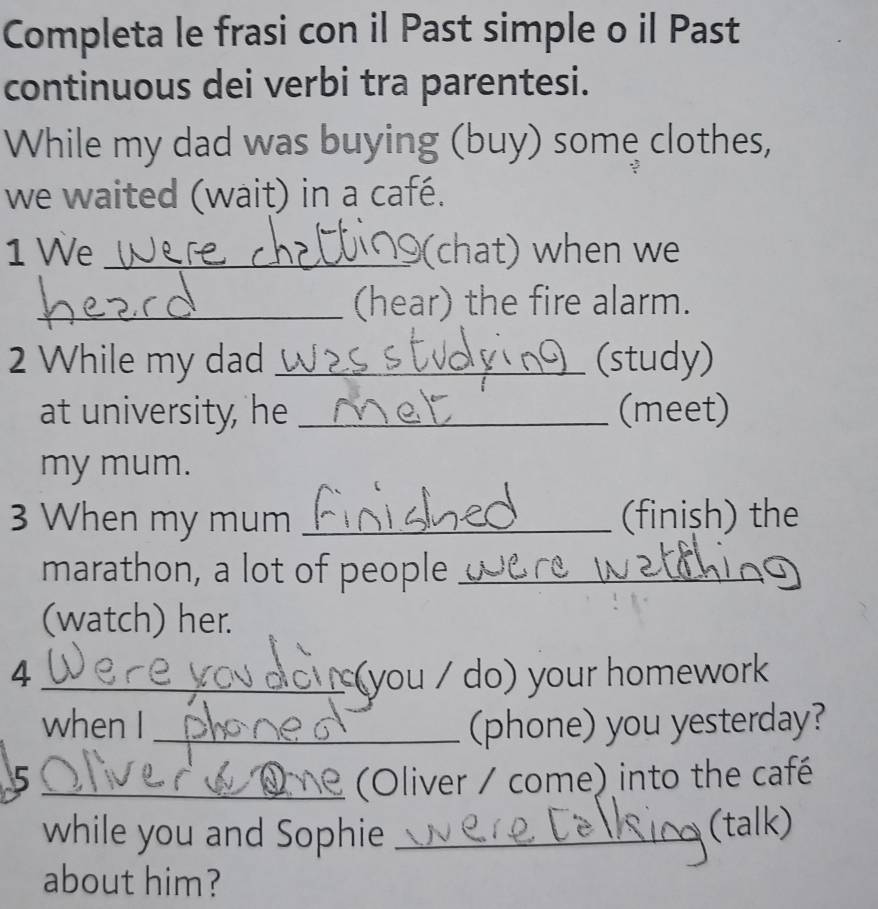 Completa le frasi con il Past simple o il Past
continuous dei verbi tra parentesi.
While my dad was buying (buy) some clothes,
we waited (wait) in a café.
1 We were chatting (chat) when we
heard (hear) the fire alarm.
2 While my dad was studying (study)
at university, he met (meet)
my mum.
3 When my mum finished (finish) the
marathon, a lot of people were watching
(watch) her.
4 Were you doing (you / do) your homework
when I phoned (phone) you yesterday?
5 Oliver (Oliver / come) into the café
while you and Sophie were talking (talk)
about him?